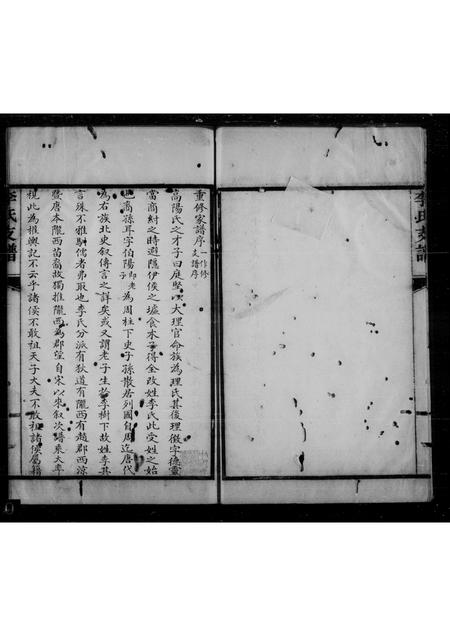 重修家譜序 一作修支譜序
高陽氏之才子曰庭堅以大理官命族為理氏其後理徵字德靈
當商紂之時避隱伊侯之墟食木子得全改姓李氏此受姓之始
也裔孫耳字伯陽即老為周柱下史子孫散居列國自周迄唐代
為右族北史叙傳言之詳矣或又謂老子生於李樹下故姓李其
言殊不雅馴儒者弗取也李氏分派有狄道有隴西有趙郡西涼
暨唐本隴西苗裔故獨推隴西為郡望自宋以來叙次譜系大率
視此為權輿記不云乎諸侯不敢祖天子大夫不敢祖諸侯屬籍
李氏支譜
李氏支譜